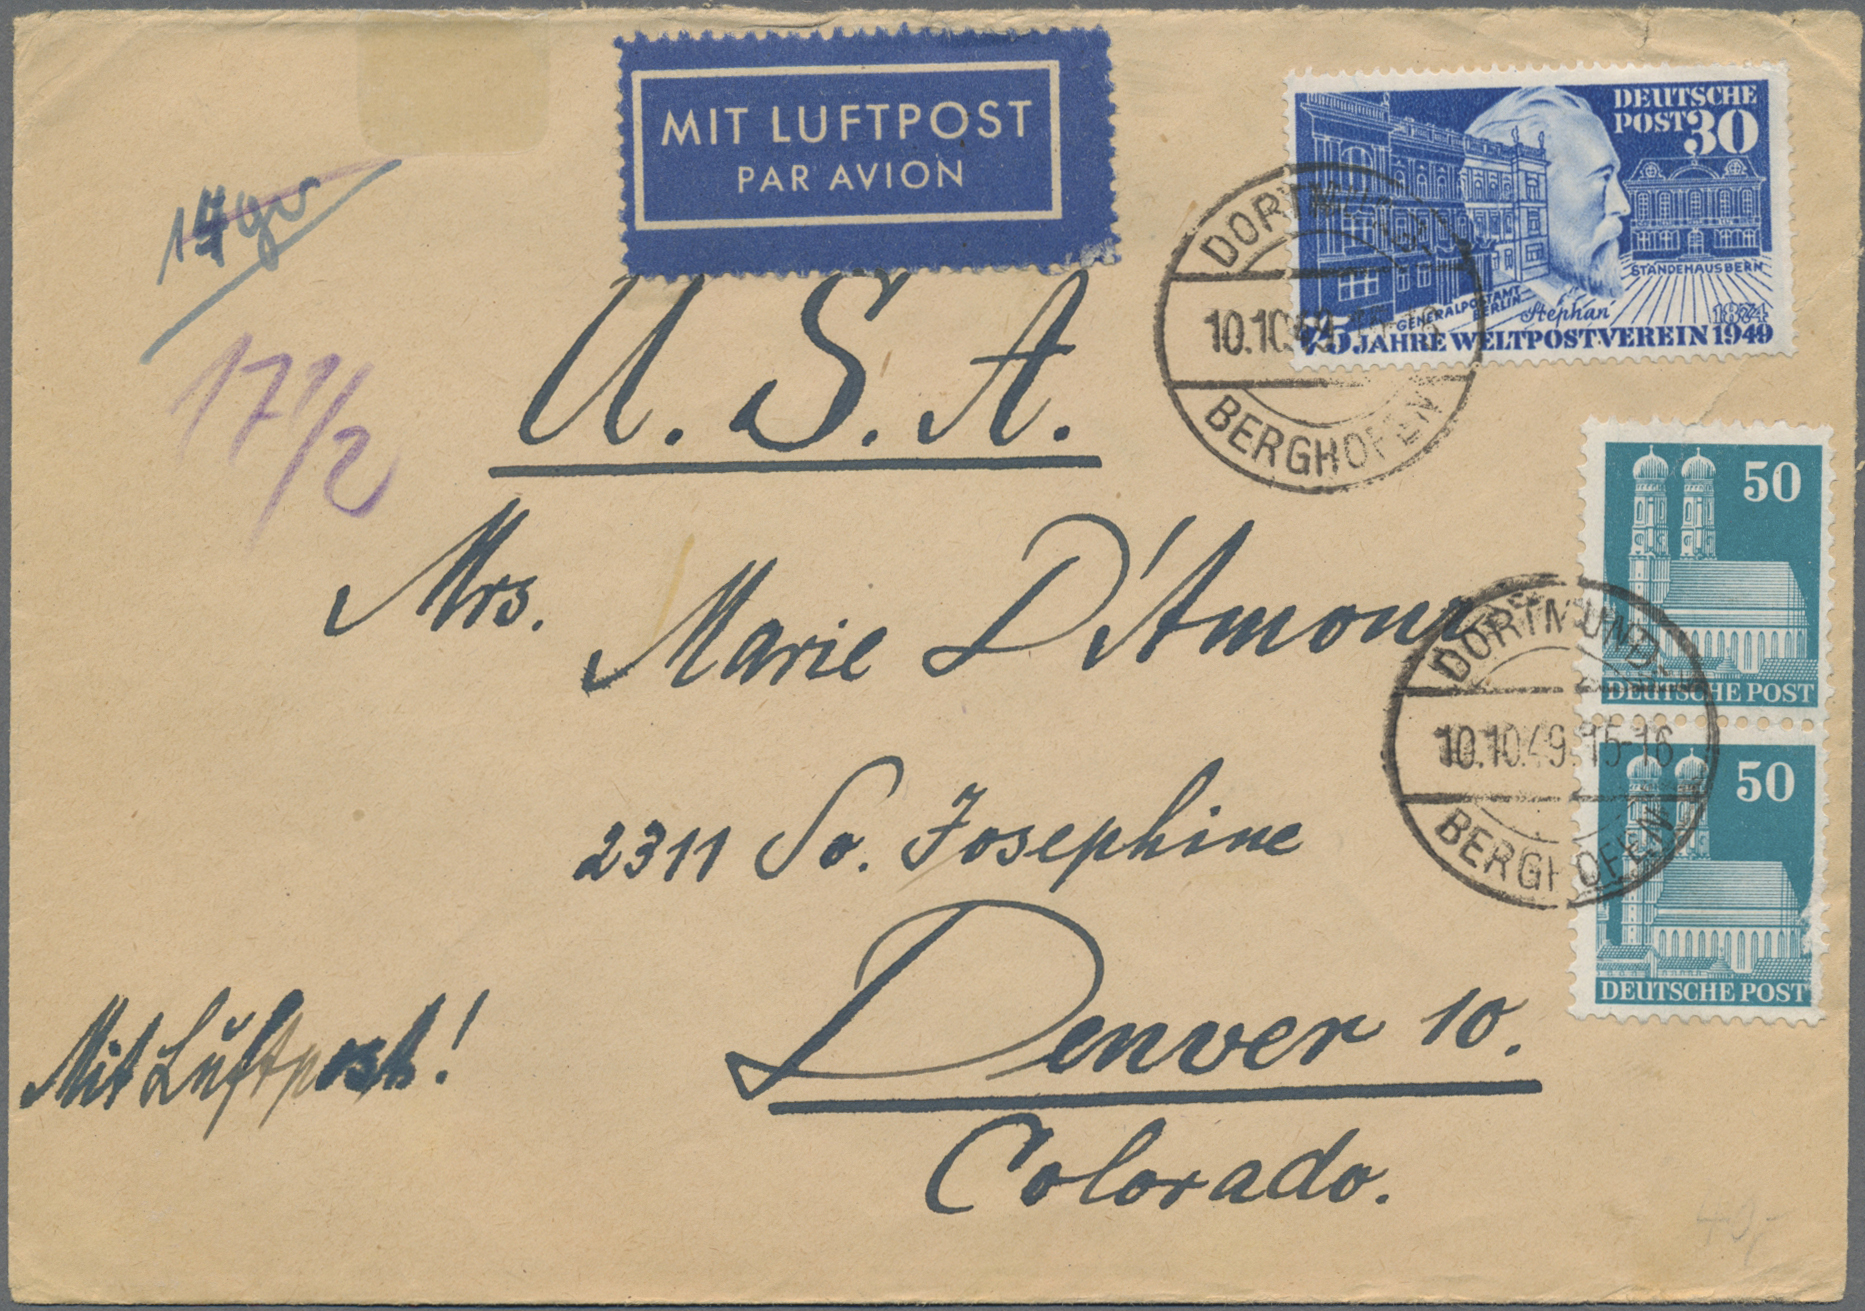 MIT LUFTPOST
PAR AVION
DEUTSCHE
POST 30
STÄNDEHAUS BERN
GENERALPOSTAMT
BERLIN
Stephan
1874
75 JAHRE WELTPOSTVEREIN 1949
DORTMUND-
10.10.49 15-16
BERGHOFEN
17 1/2
U.S.A.
Mrs. Marie D'Amour
50
DEUTSCHE POST
DORTMUND-
10.10.49.15-16
BERGHOFEN
50
DEUTSCHE POST
2311 So. Josephine
Denver 10.
Colorado.
Mit Luftpost!